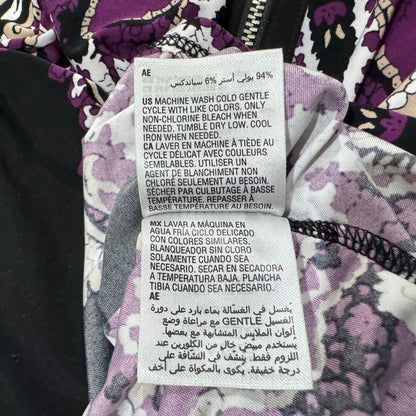 AE
94% بولي أستر 6% سباندكس
US MACHINE WASH COLD GENTLE
CYCLE WITH LIKE COLORS. ONLY
NON-CHLORINE BLEACH WHEN
NEEDED. TUMBLE DRY LOW. COOL
IRON WHEN NEEDED.
CA LAVER EN MACHINE À TIÈDE AU
CYCLE DÉLICAT AVEC COULEURS
SEMBLABLES. UTILISER UN
AGENT DE BLANCHIMENT NON
CHLORÉ SEULEMENT AU BESOIN.
SÉCHER PAR CULBUTAGE À BASSE
TEMPÉRATURE. REPASSER À
BASSE TEMPÉRATURE AU BESOIN.
MX LAVAR A MÁQUINA EN
AGUA FRÍA CICLO DELICADO
CON COLORES SIMILARES.
BLANQUEADOR SIN CLORO
SOLAMENTE CUANDO SEA
NECESARIO. SECAR EN SECADORA
A TEMPERATURA BAJA. PLANCHA
TIBIA CUANDO SEA NECESARIO.
AE
يغسل في الغسالة بماء بارد على دورة
الغسيل GENTLE مع مراعاة وضع
ألوان الملابس المتشابهة مع بعضها.
يستخدم مبيض خالي من الكلور عند
اللزوم فقط. ينشف في النشافة على
درجة منخفضة. يكوى بمكواة باردة عند الحاجة.